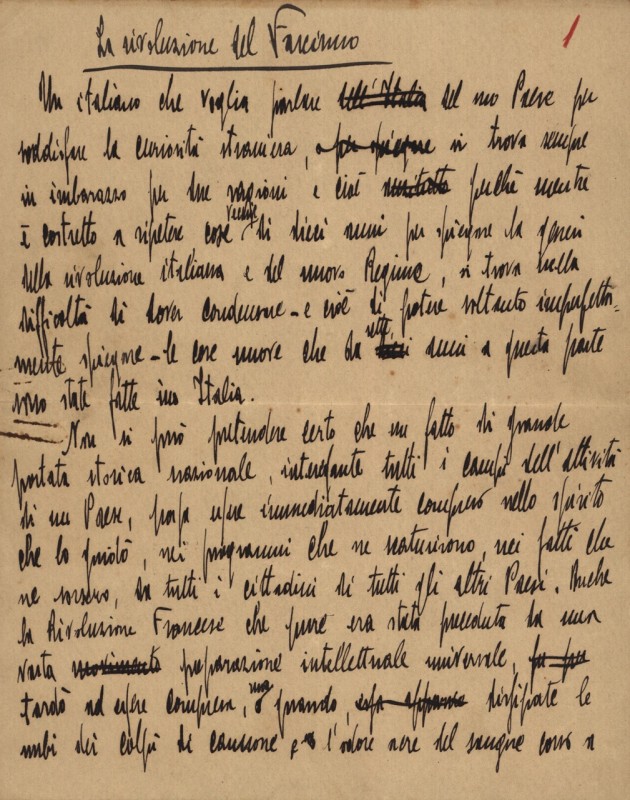 La rivoluzione del Fascismo
1
Un italiano che voglia parlare dell'Italia del suo Paese per
soddisfare la curiosità straniera, si trova sempre
in imbarazzo per due ragioni e cioè perchè mentre
è costretto a ripetere cose vecchie di dieci anni per spiegare la genesi
della rivoluzione italiana e del nuovo Regime, si trova nella
difficoltà di dover condensare - e cioè di potere soltanto imperfetta=
mente spiegare - le cose nuove che da sette anni a questa parte
sono state fatte in Italia.
Non si può pretendere certo che un fatto di grande
portata storica nazionale, interessante tutti i campi dell'attività
di un Paese, possa essere immediatamente compreso nello spirito
che lo guidò, nei programmi che ne scaturirono, nei fatti che
ne sorsero, da tutti i cittadini di tutti gli altri Paesi. Anche
la Rivoluzione Francese che pure era stata preceduta da una
vasta movimento preparazione intellettuale universale,
tardò ad essere compresa, ma quando, dissipate le
nubi dei colpi di cannone e l'odore acre del sangue corso a